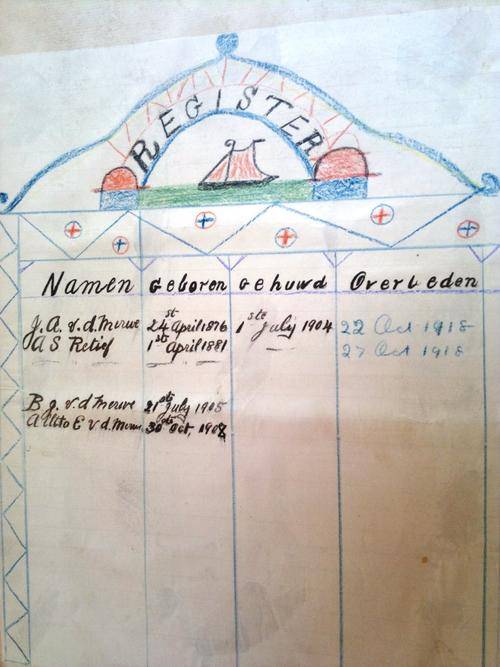 REGISTER
Namen Geboren Gehuwd Overleden
J. A. v. d. Merwe 24st April 1876 1ste July 1904 22 Oct 1918
A S Retief 1ste April 1881 27 Oct 1918
B J. v. d Merwe 21ste July 1905
E v d Merwe 30ste Oct, 1907